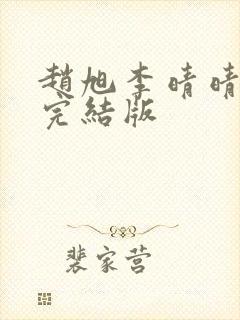 趙旭李晴晴
完結版
裴家营